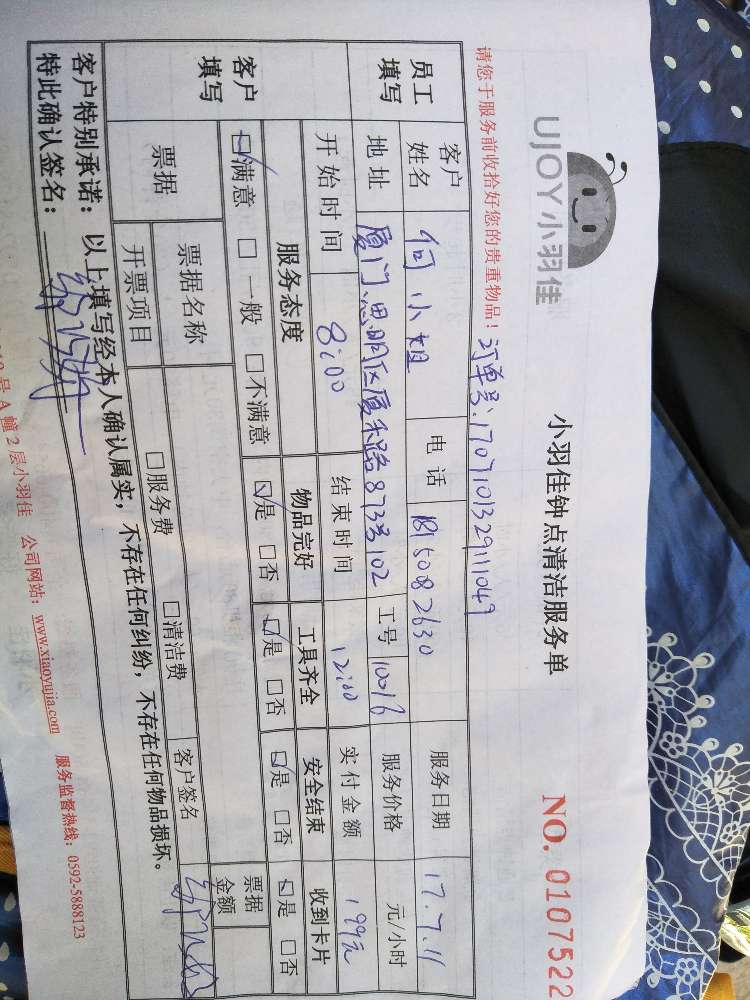 UJOY小羽佳
小羽佳钟点清洁服务单
NO. 0107522
请您于服务前收拾好您的贵重物品！订单号:170710132911049
员工填写 客户姓名 何小姐 电话 1815082630 服务日期 17.7.11
地址 厦门思明区厦禾路873号102 工号 10016 服务价格 元/小时
开始时间 8:00 结束时间 12:00 实付金额 199元
客户填写 服务态度 物品完好 工具齐全 安全结束 收到卡片
☑满意 □一般 □不满意 ☑是 □否 ☑是 □否 ☑是 □否 ☑是 □否
票据 票据名称 客户签名 票据金额
开票项目 □服务费 □清洁费
客户特别承诺：以上填写经本人确认属实，不存在任何纠纷，不存在任何物品损坏。
特此确认签名：
号A幢2层小羽佳 公司网站：www.xiaoyujia.com 服务监督热线：0592-5888123